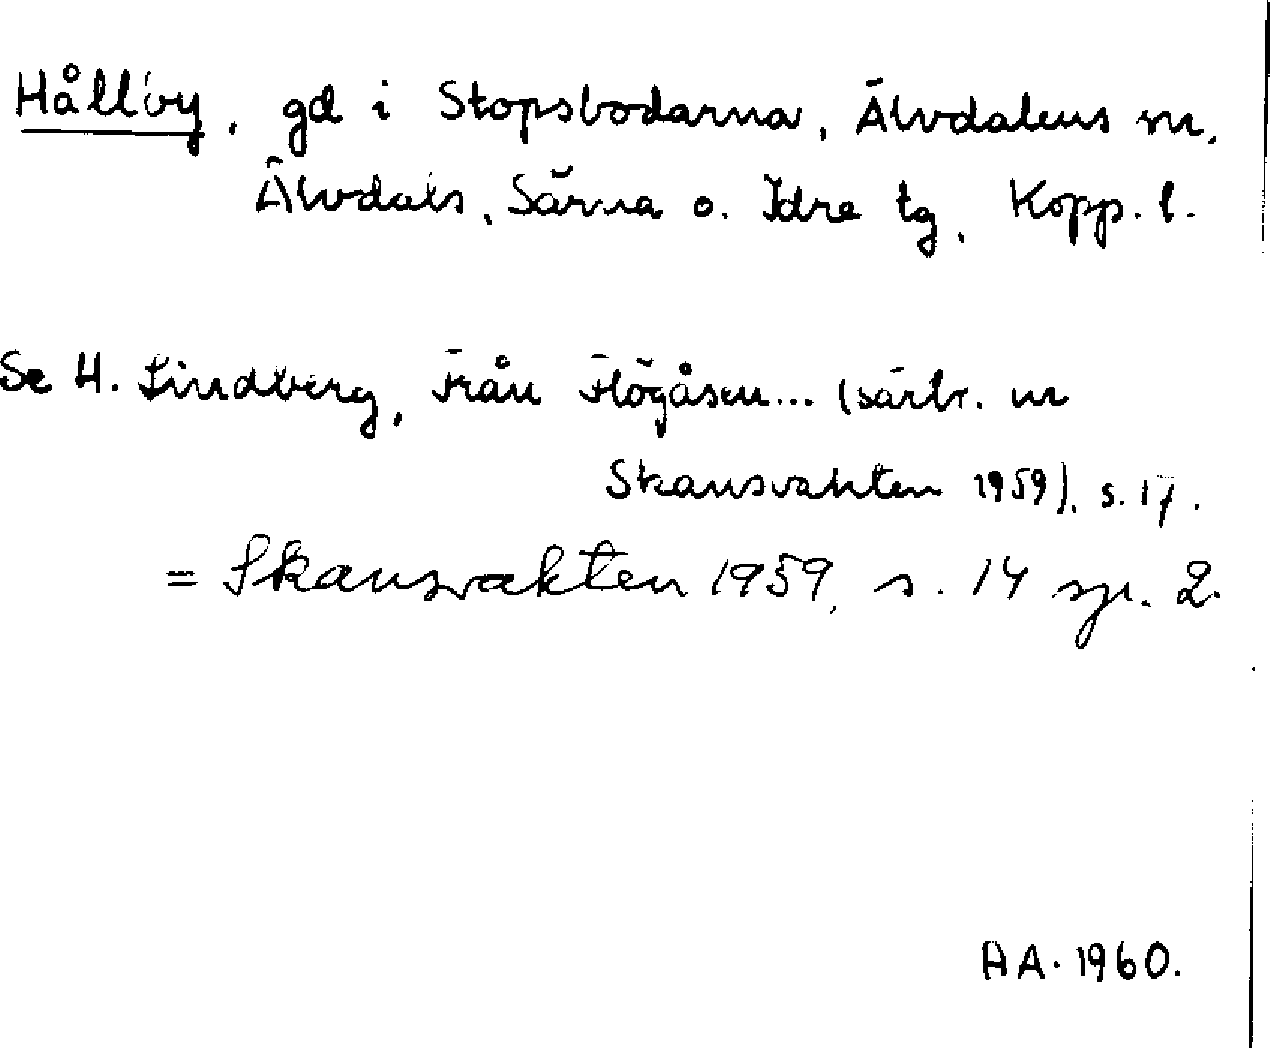 Hållby, gd i Stopsbodarna, Älvdalens sn,
Älvdals, Särna o. Idre tg, Kopp. l.
Se H. Lindberg, Från Högåsen... (särtr. ur
Skansvakten 1959), s. 17.
= Skansvakten 1959, s. 14 sp. 2.
AA. 1960.